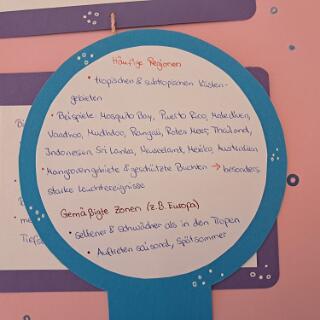 Häufige Regionen
• tropischen & subtropischen Küsten-
gebieten
• Beispiele: Mosquito Bay, Puerto Rico, Malediven,
Vaadhoo, Mudhdoo, Rangali, Rotes Meer, Thailand,
Indonesien, Sri Lanka, Neuseeland, Mexiko, Australien
• Mangrovengebiete & geschützte Buchten → besonders
starke Leuchtereignisse
Gemäßigte Zonen (z.B. Europa)
• seltener & schwächer als in den Tropen
• Auftreten saisonal, spätsommer